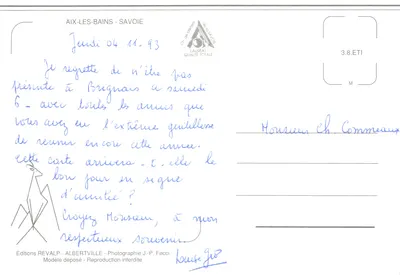 AIX-LES-BAINS - SAVOIE
Jeudi 04 11. 93
Je regrette de n'être pas
présente à Brignais ce samedi
6 - avec toutes les amies que
vous avez eu l'extrême gentillesse
de réunir encore cette année.
Cette carte arrivera-t-elle le
bon jour en signe
d'amitié ?
Croyez Monsieur, à mon
respectueux souvenir.
3.6.ETI
Monsieur Ch. Commeaux
Editions REVALP - ALBERTVILLE - Photographie J.-P.
Modèle déposé - Reproduction interdite